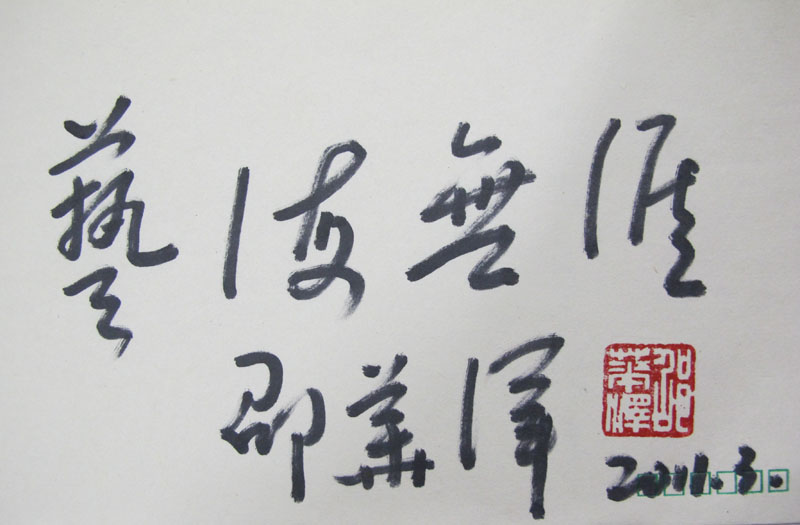 藝海無涯
邵華澤
邵華澤
2011.3.